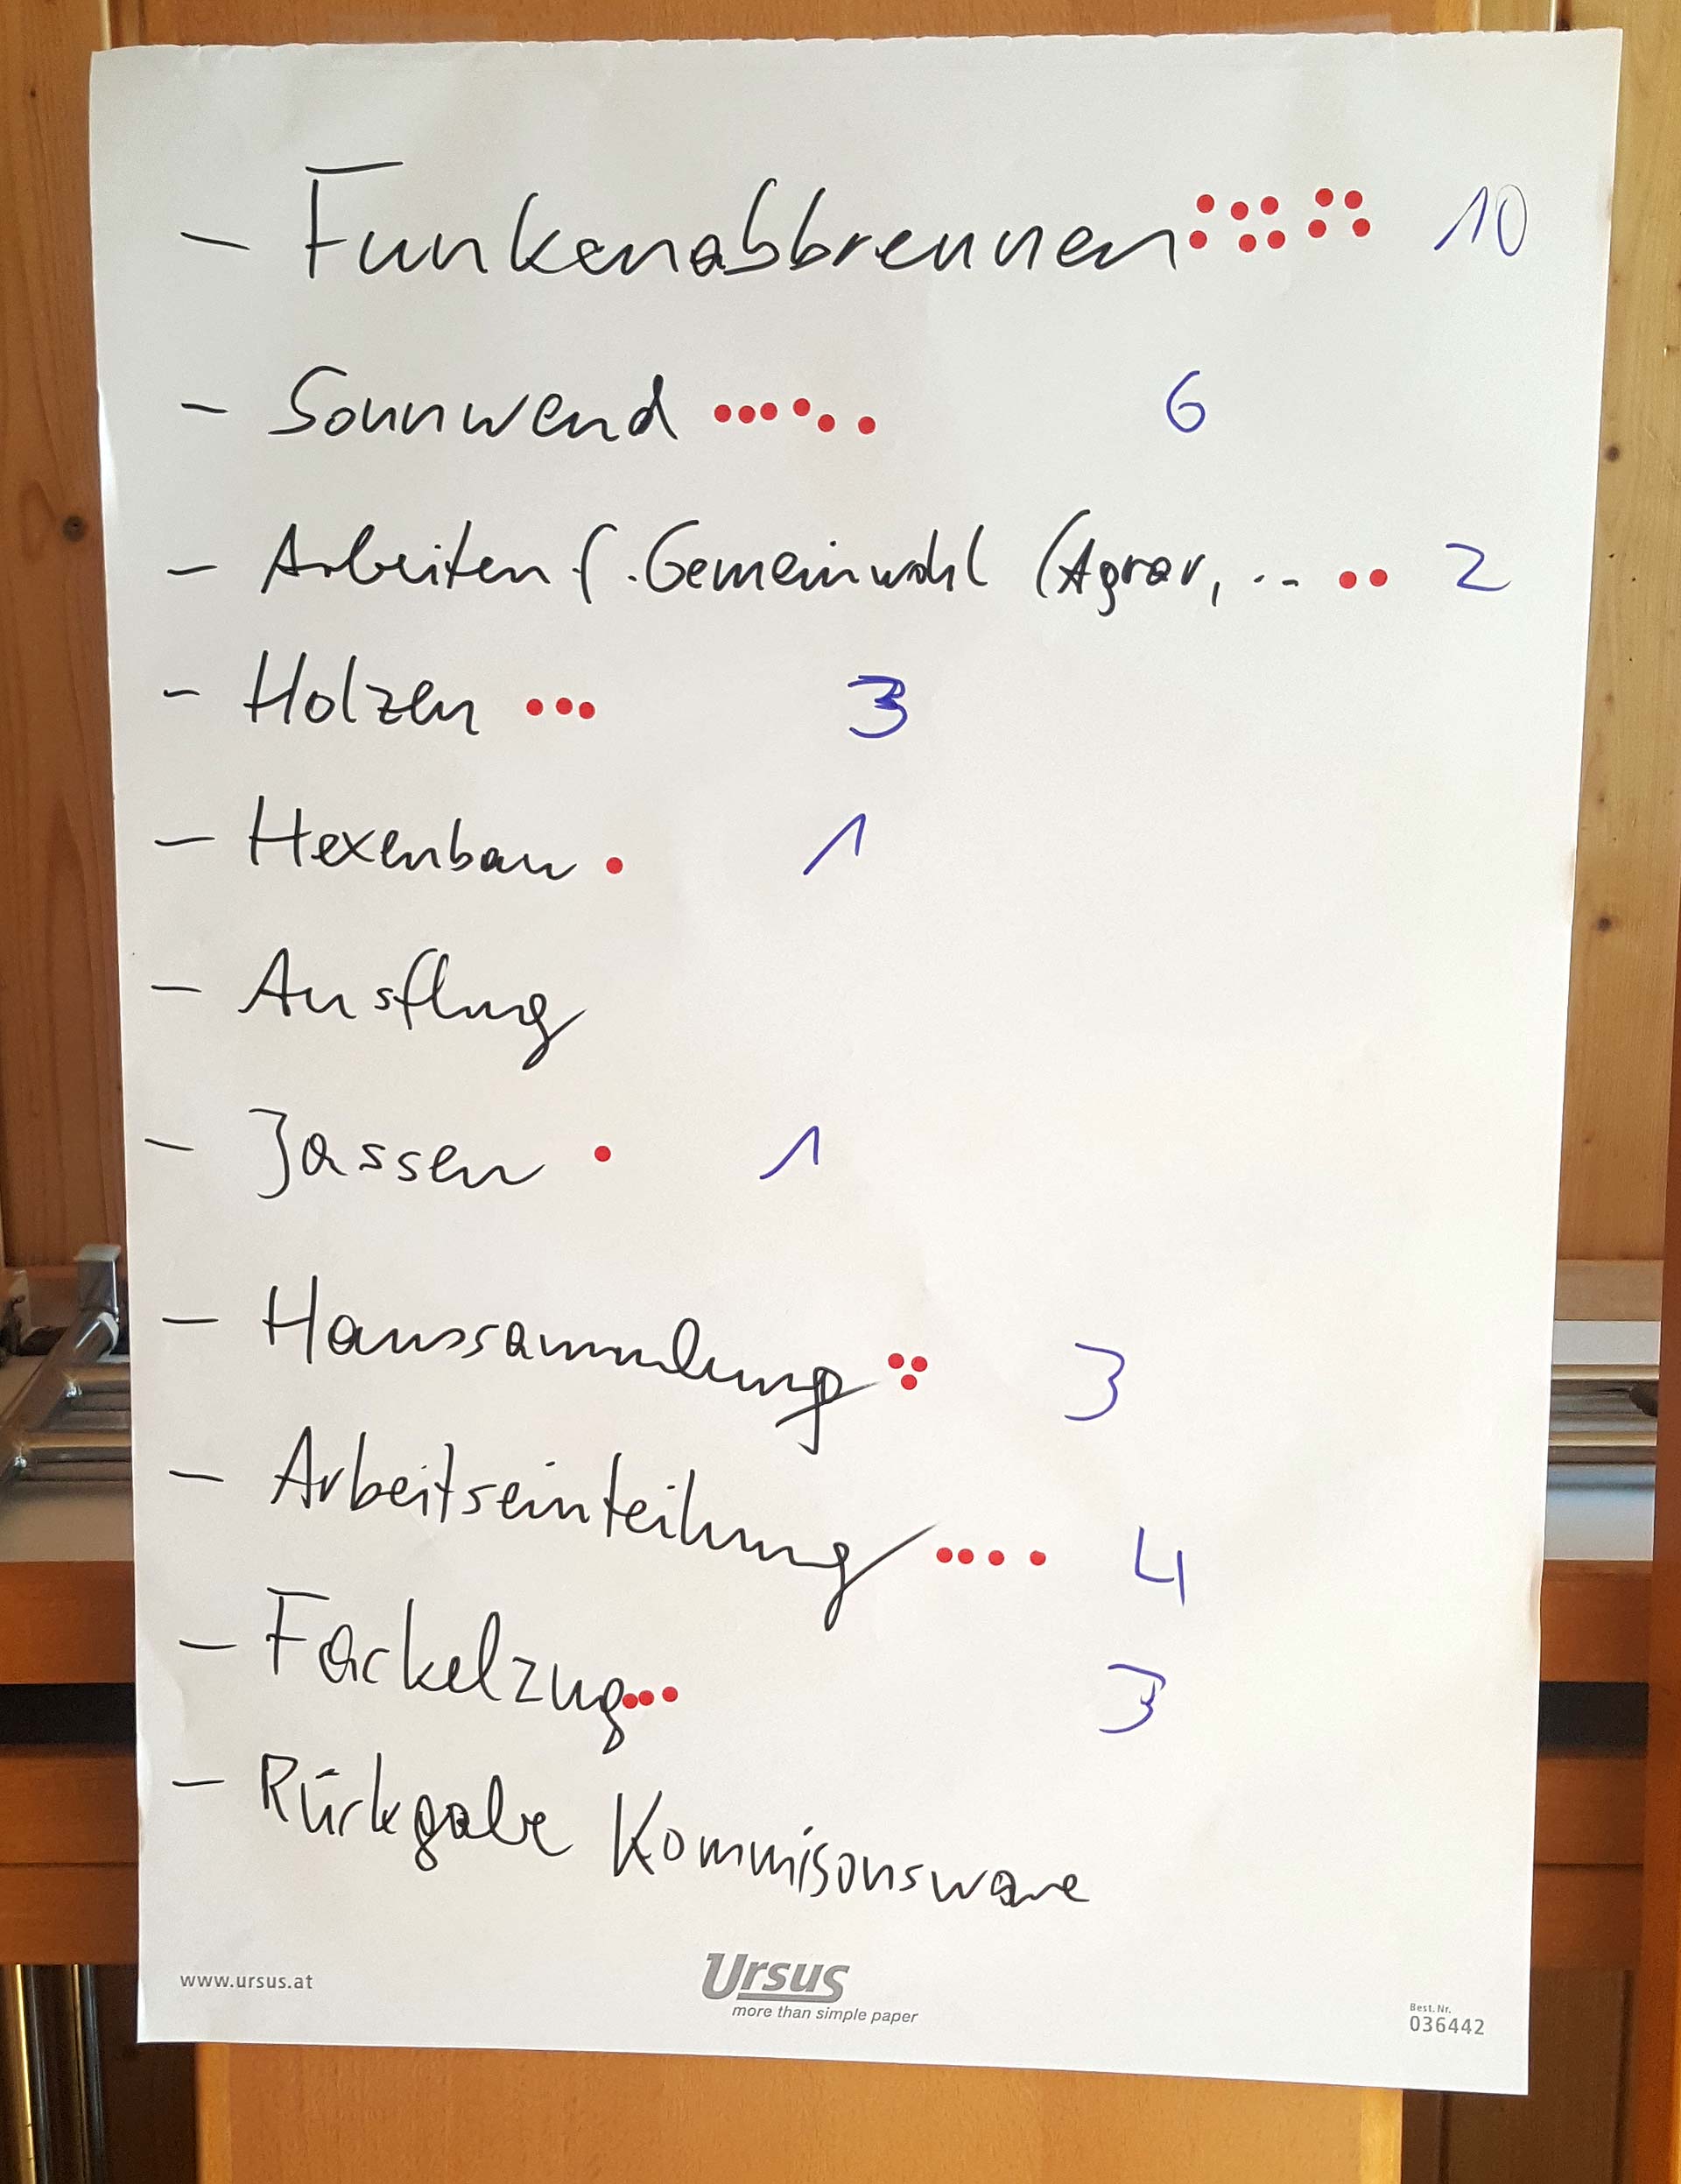 - Funkenabbrennen 10
- Sonnwend 6
- Arbeiten f. Gemeinwohl (Agrar, ... 2
- Holzen 3
- Hexenbau 1
- Ausflug
- Jassen 1
- Haussammlung 3
- Arbeitseinteilung 4
- Fackelzug 3
- Rückgabe Kommisonsware
www.ursus.at
Ursus
more than simple paper
Best. Nr.
036442